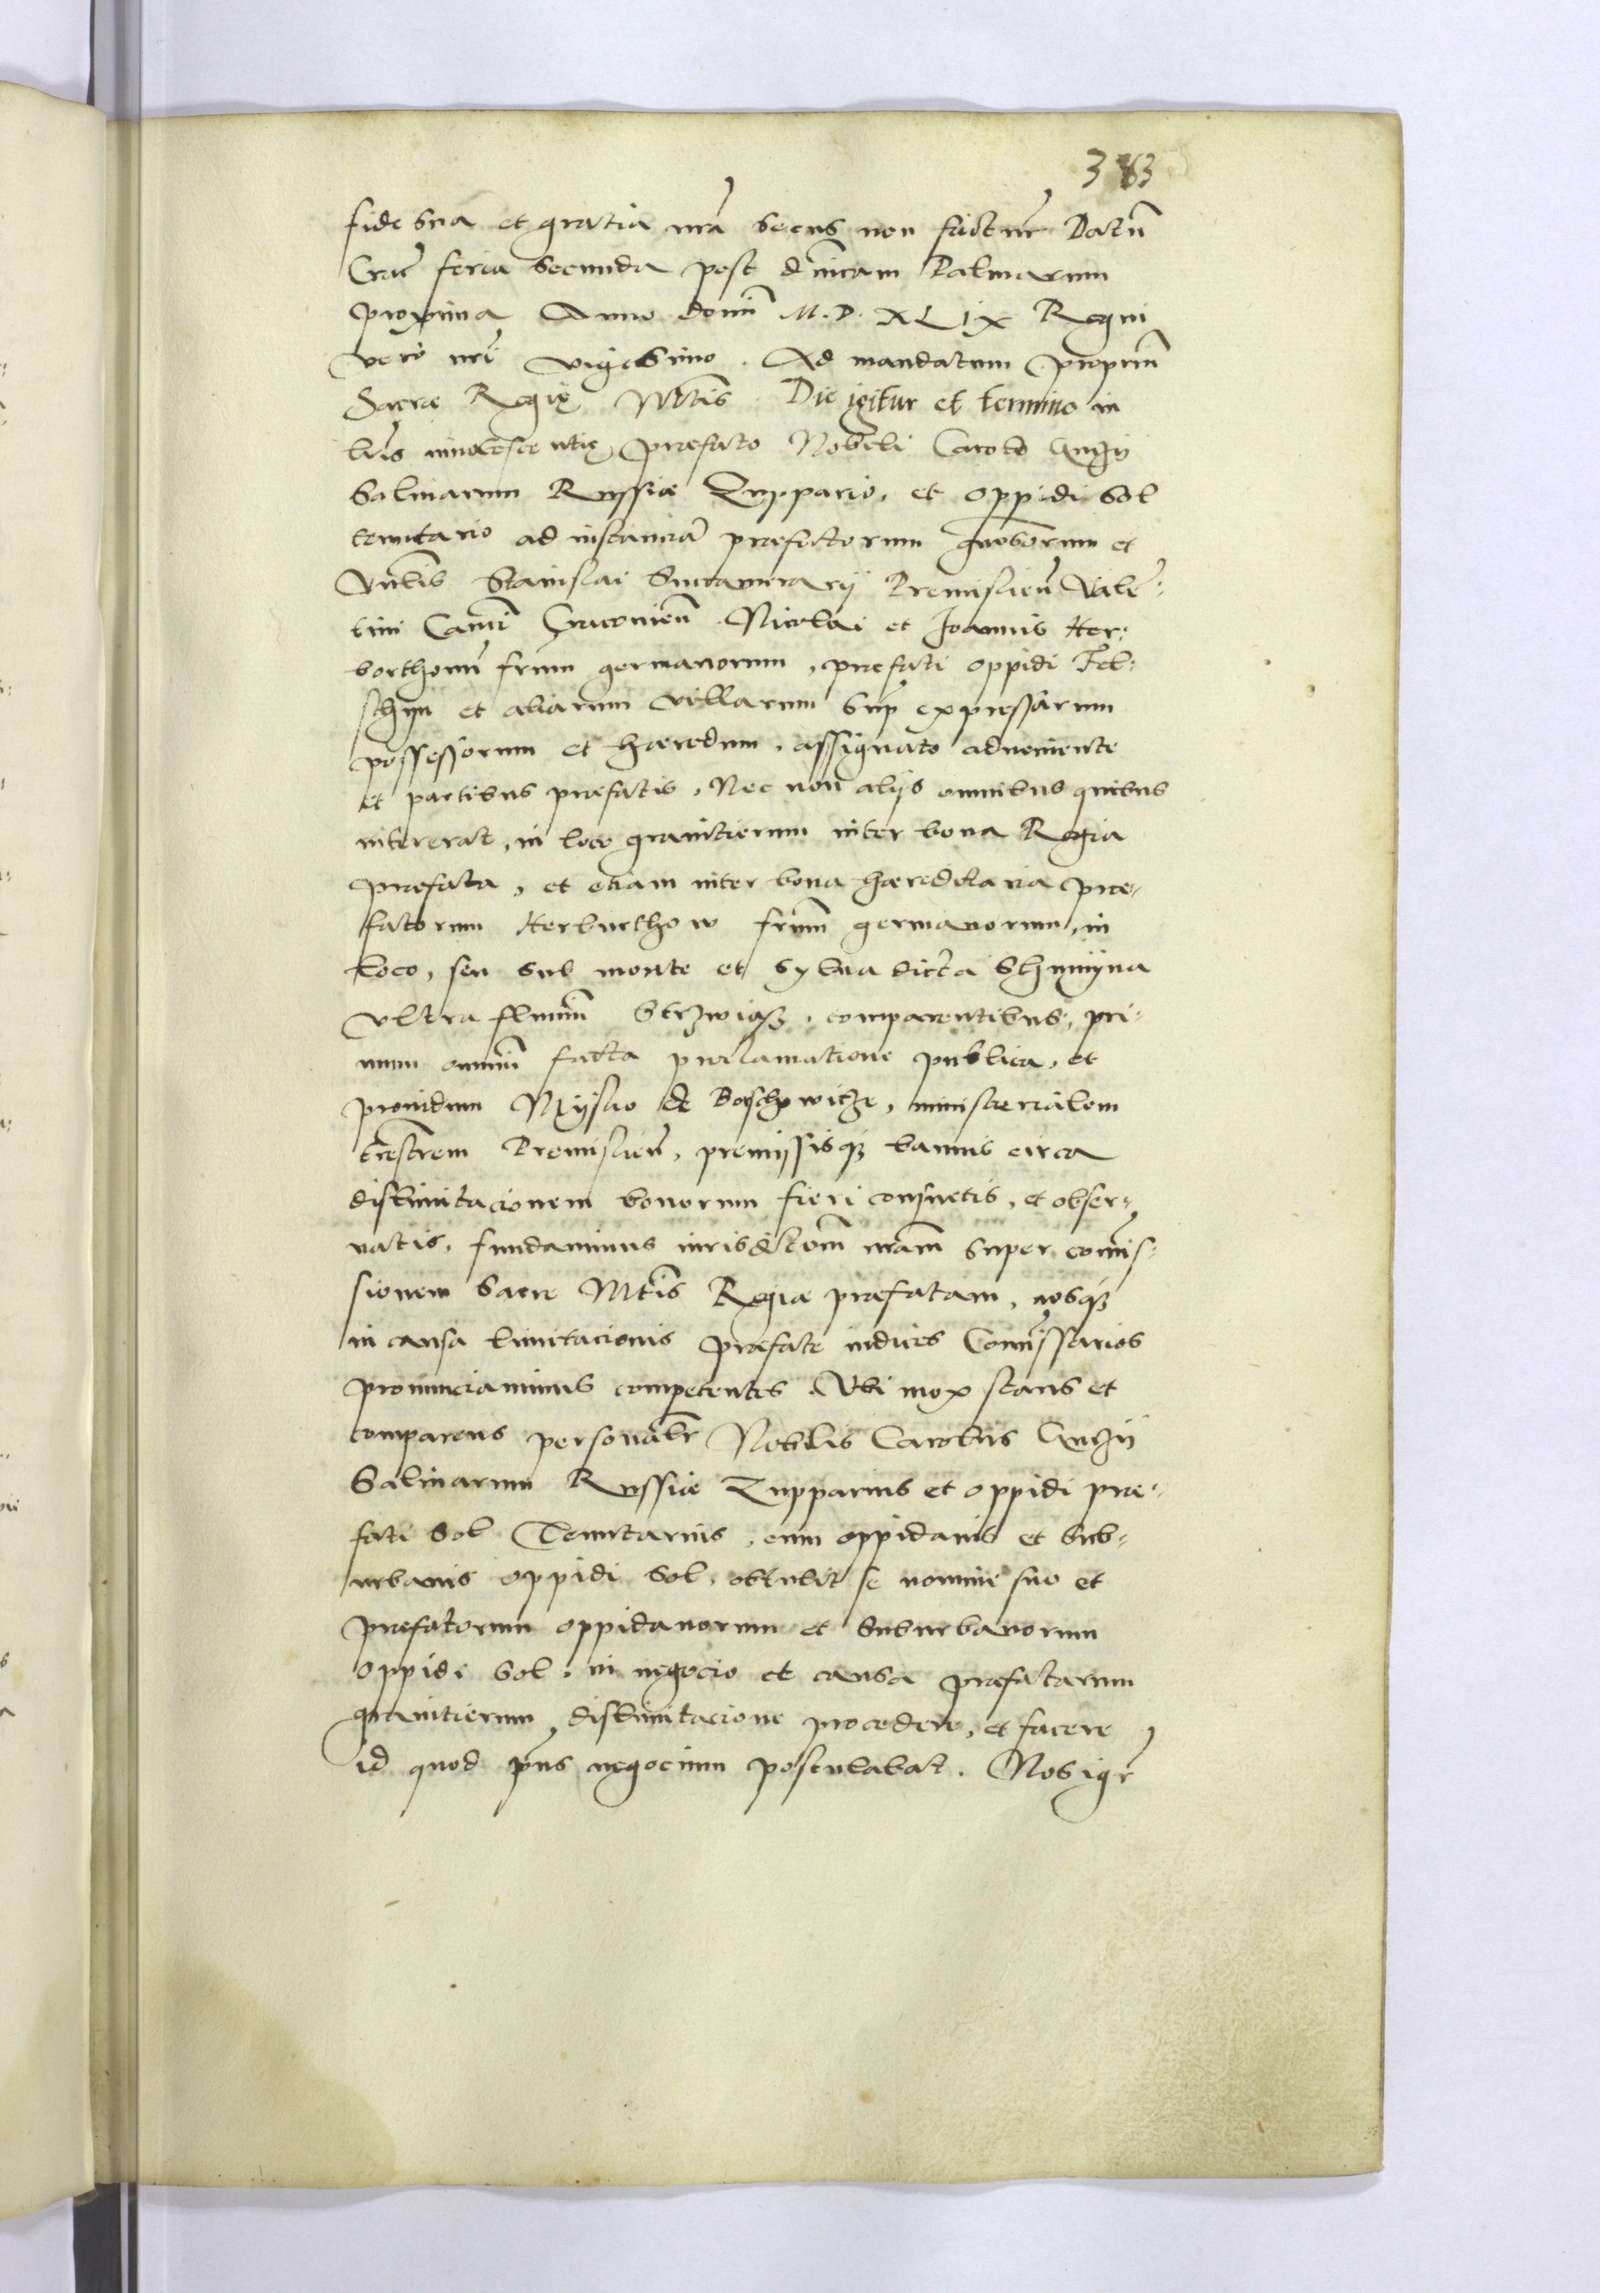 383
fide sua et gratia nrã secus non factur̃ Datũ
Crac̃ feria secunda post dñicam Palmarum
proxima Anno domĩ M.D. XLIX Regni
vero nrĩ vigesimo. Ad mandatum propriũ
Sacrae Regię Mtĩs. Die igitur et termino in
lrĩs innotescentię praefato Nobili Carolo
Salinarum Russiae Zuppario, et oppidi Sol
tenutario ad instantiã praefatorum gnosorum et
Stanislai Succamerarij Premislieñ Valẽ:
tini Canĩ Cracovieñ Nicolai et Joannis Her:
borthonũ frum germanorum, praefati oppidi Fel:
schijn et aliarum villarum sup̃ expressarum
possessorum et haeredum, assignato adveniente
et partibus praefatis, Nec non alijs omnibus quibus
intererat, in loco granitierum inter bona Regia
praefata, et etiam inter bona haereditaria prae,
fatorum Herburthow frũm germanorum, in
loco, seu sub monte et sylva dicta
ultra flumẽ Strzwiąsz, comparentibus, pri:
mum omniũ facta proclamatione publica, et
providum de ministerialem
trẽstrem Premislieñ, premijssisq3 bannis circa
distlimitacionem bonorum fieri consuetis, et obser,
vatis, fundavimus iurisdictõm nrãm super comĩs:
sionem Sacre Mtĩs Regiae praefatam, nosq3
in causa limitacionis praefate iudices Comĩssarios
pronunciavimus competentes. Ubi mox stans et
comparens personalr̃ Nobilis Carolus
Salinarum Russiae Zupparius et oppidi prae:
fati Sol Tenutarius, cum oppidanis et sub,
urbanis oppidi Sol, obtulit se nomine suo et
praefatorum oppidanorum et suburbanorum
oppidi Sol, in negocio et causa praefatarum
granitierum, distlimitacione procedere, et facere
id quod pñs negocium postulabat. Nos igr̃